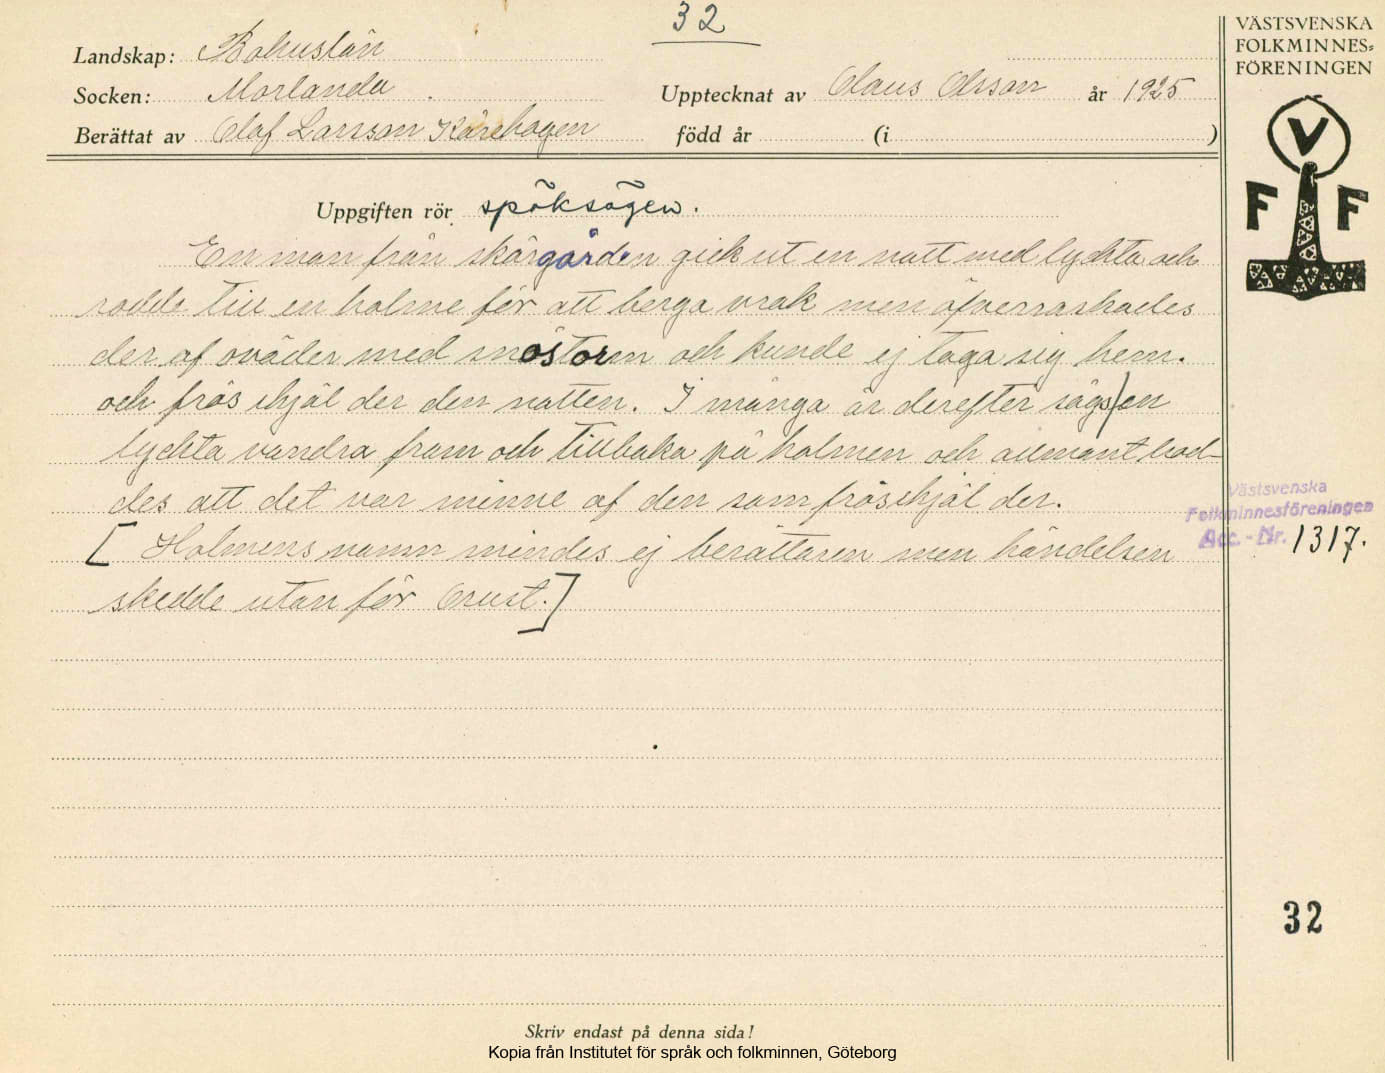 32
Landskap: Bohuslän
Socken: Morlanda
Berättat av Olof Larsson Kårehogen
Upptecknat av Claus Olsson år 1925
född år (i )
VÄSTSVENSKA
FOLKMINNES-
FÖRENINGEN
V
F F
Uppgiften rör spöksägen.
En man från skärgården gick ut en natt med lyckta och
rodde till en holme för att berga vrak men öfverraskades
der af oväder med snöstorm och kunde ej taga sig hem.
och frös ihjäl der den natten. I många år derefter sågs en
lyckta vandra fram och tillbaka på holmen och allmänt trod-
des att det var minne af den som frös ihjäl der.
[Holmens namn mindes ej berättaren men händelsen
skedde utanför Orust.]
Västsvenska
Folkminnesföreningen
Acc.-Nr. 1317.
32
Skriv endast på denna sida!
Kopia från Institutet för språk och folkminnen, Göteborg